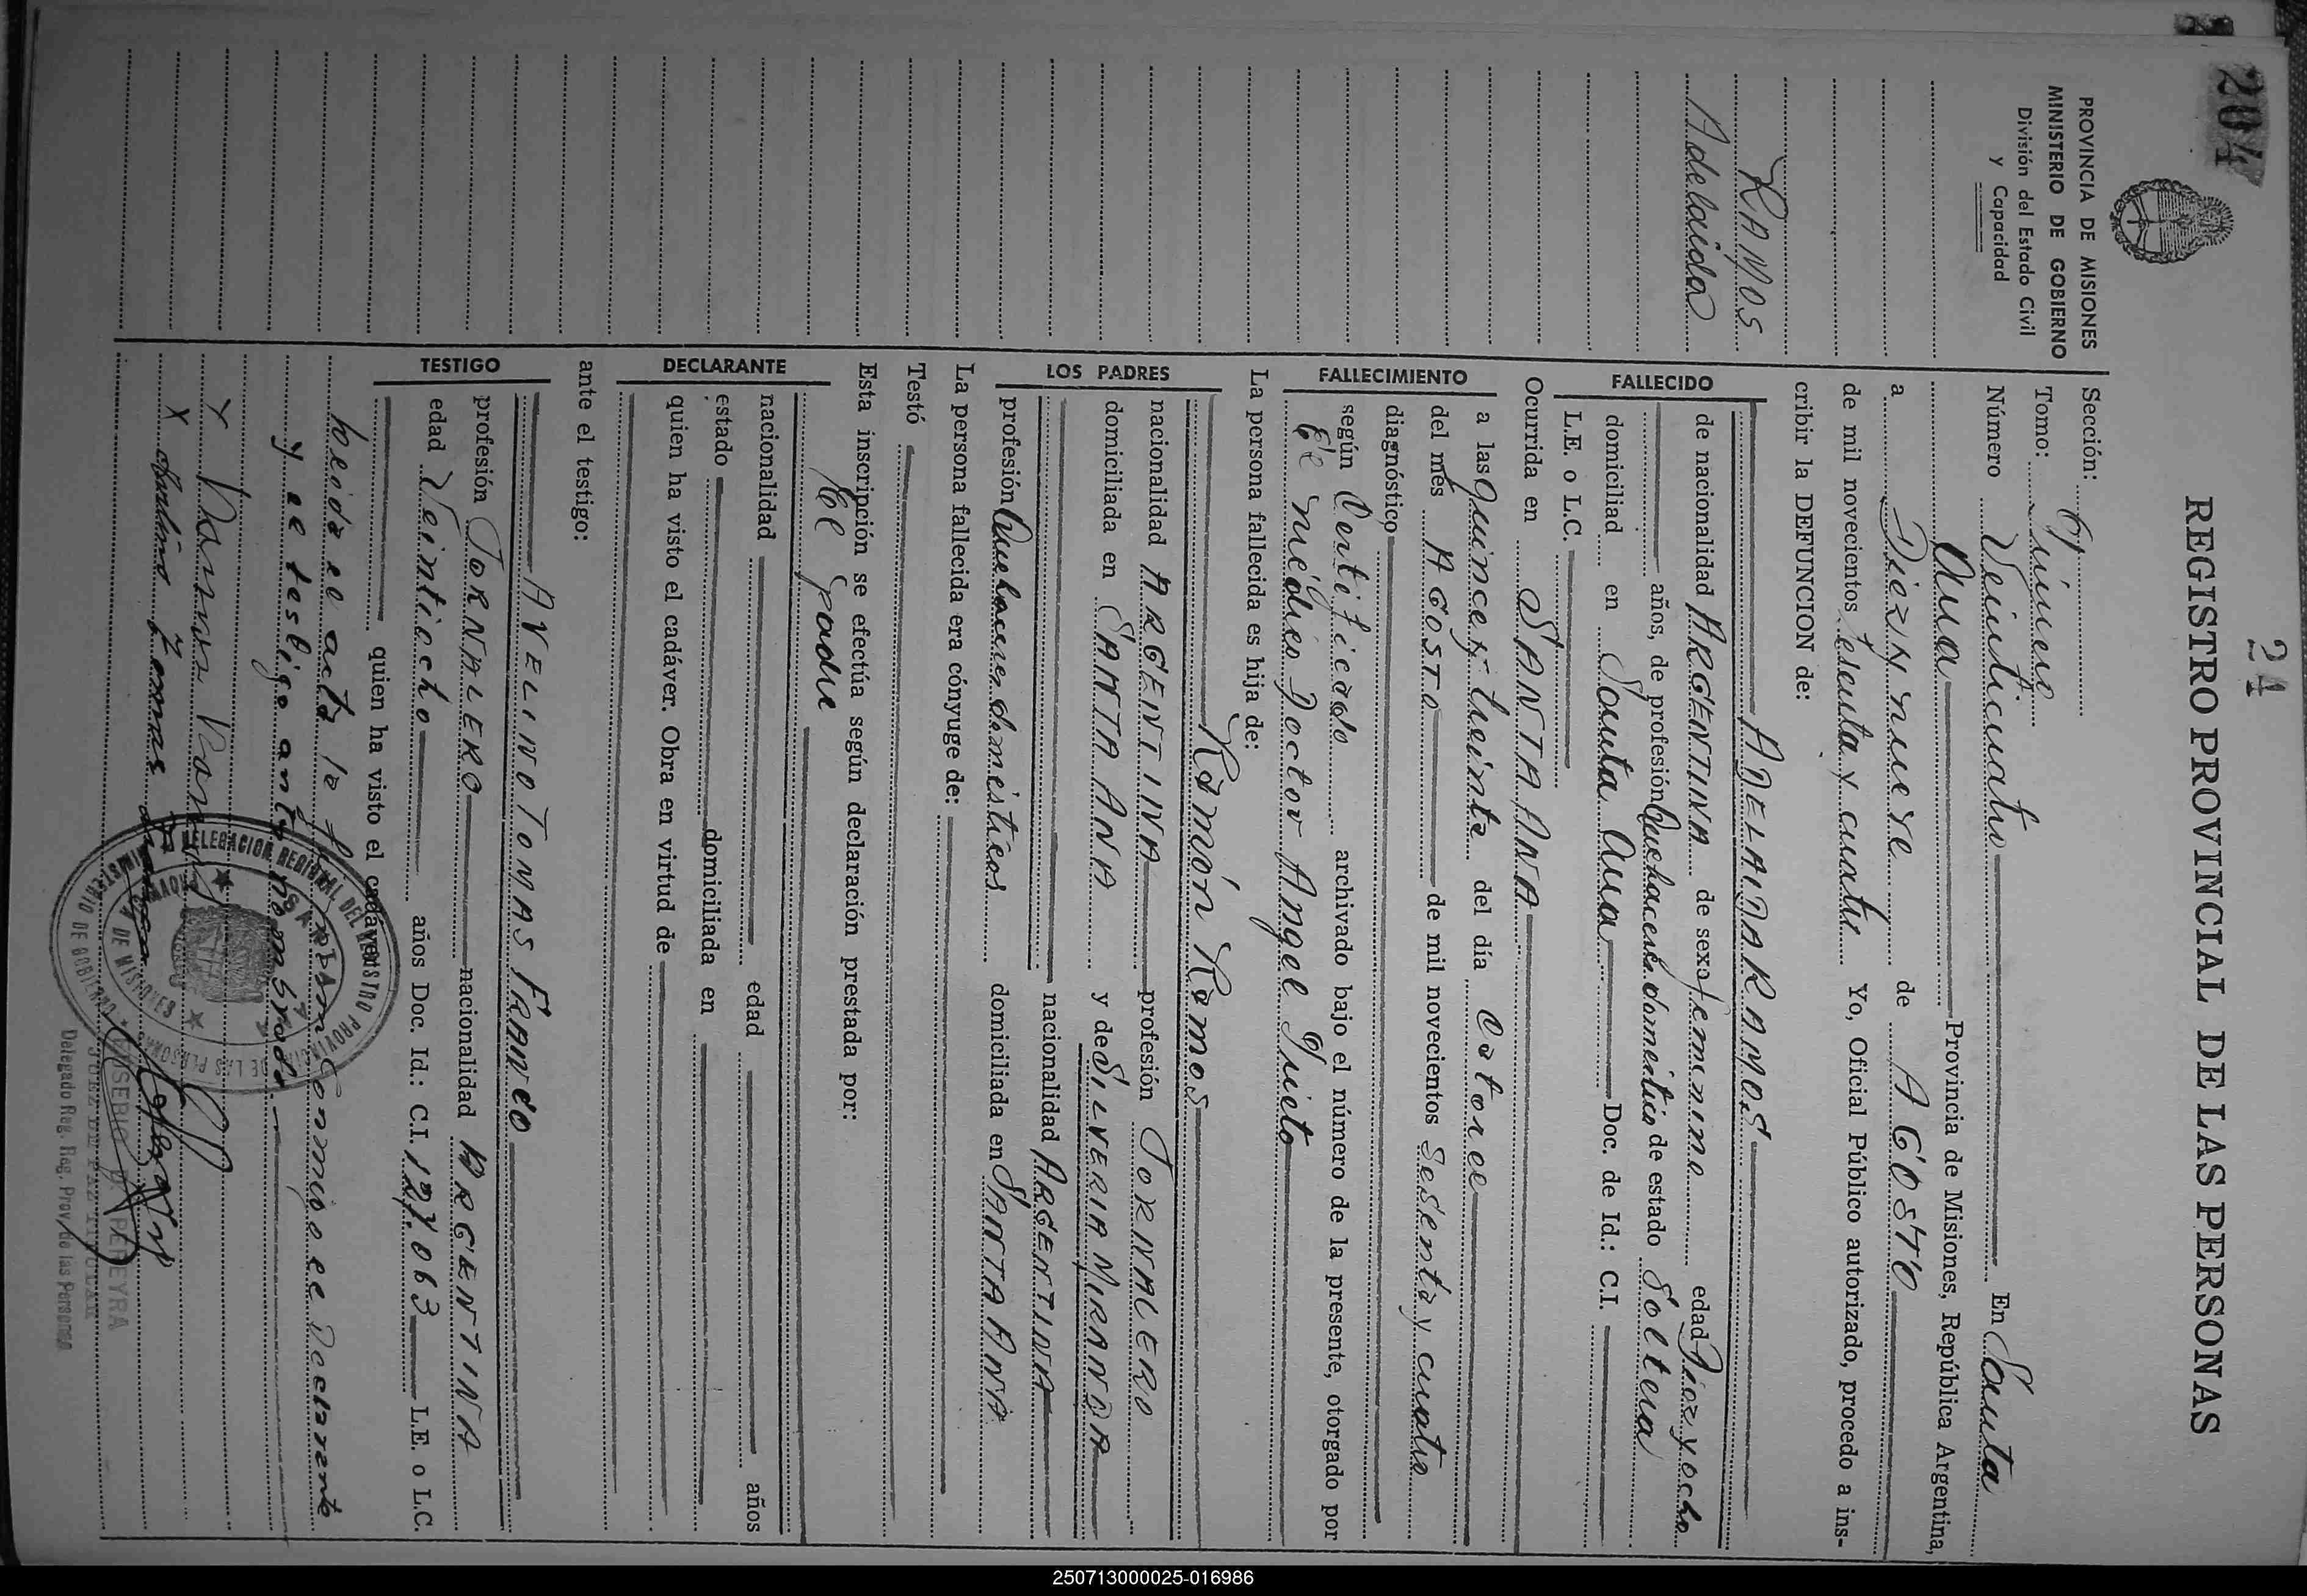 204
24
REGISTRO PROVINCIAL DE LAS PERSONAS
PROVINCIA DE MISIONES
MINISTERIO DE GOBIERNO
División del Estado Civil
y Capacidad
RAMOS
Adelaida
Sección:
Tomo: Primero
Número Veinticuatro En Santa
Ana Provincia de Misiones, República Argentina,
a Diez y nueve de AGOSTO
de mil novecientos sesenta y cuatro Yo, Oficial Público autorizado, procedo a ins-
cribir la DEFUNCION de:
FALLECIDO
ADELAIDA RAMOS
de nacionalidad ARGENTINA de sexo femenino edad Diez y ocho
años, de profesión Quehaceres domésticos de estado Soltera
domiciliad en Santa Ana Doc. de Id.: C.I.
L.E. o L.C.
Ocurrida en SANTA ANA
FALLECIMIENTO
a las quince y treinta del día Catorce
del mes AGOSTO de mil novecientos sesenta y cuatro
diagnóstico
según Certificado archivado bajo el número de la presente, otorgado por
el médico Doctor Angel
La persona fallecida es hija de:
LOS PADRES
Ramón Ramos
nacionalidad ARGENTINA profesión JORNALERO
domiciliada en SANTA ANA y de SILVERIA MIRANDA
nacionalidad ARGENTINA
profesión Quehaceres domésticos domiciliada en SANTA ANA
La persona fallecida era cónyuge de:
Testó
Esta inscripción se efectúa según declaración prestada por:
El padre
DECLARANTE
nacionalidad edad años
estado domiciliada en
quien ha visto el cadáver. Obra en virtud de
ante el testigo:
TESTIGO
AVELINO TOMAS FRANCO
profesión JORNALERO nacionalidad ARGENTINA
edad Veintiocho años Doc. Id.: C.I. 127.063 L.E. o L.C.
quien ha visto el cadáver
Leida el acta la firman conmigo el Declarante
y el testigo antes nombrado.
X Ramon Ramos
X
DELEGACION REGIONAL DEL REGISTRO PROVINCIAL DE LAS PERSONAS
MINISTERIO DE GOBIERNO
SANTA ANA
MISIONES
PEREYRA
JUEZ DE PAZ TITULAR
Delegado Reg. Reg. Prov. de las Personas
250713000025-016986